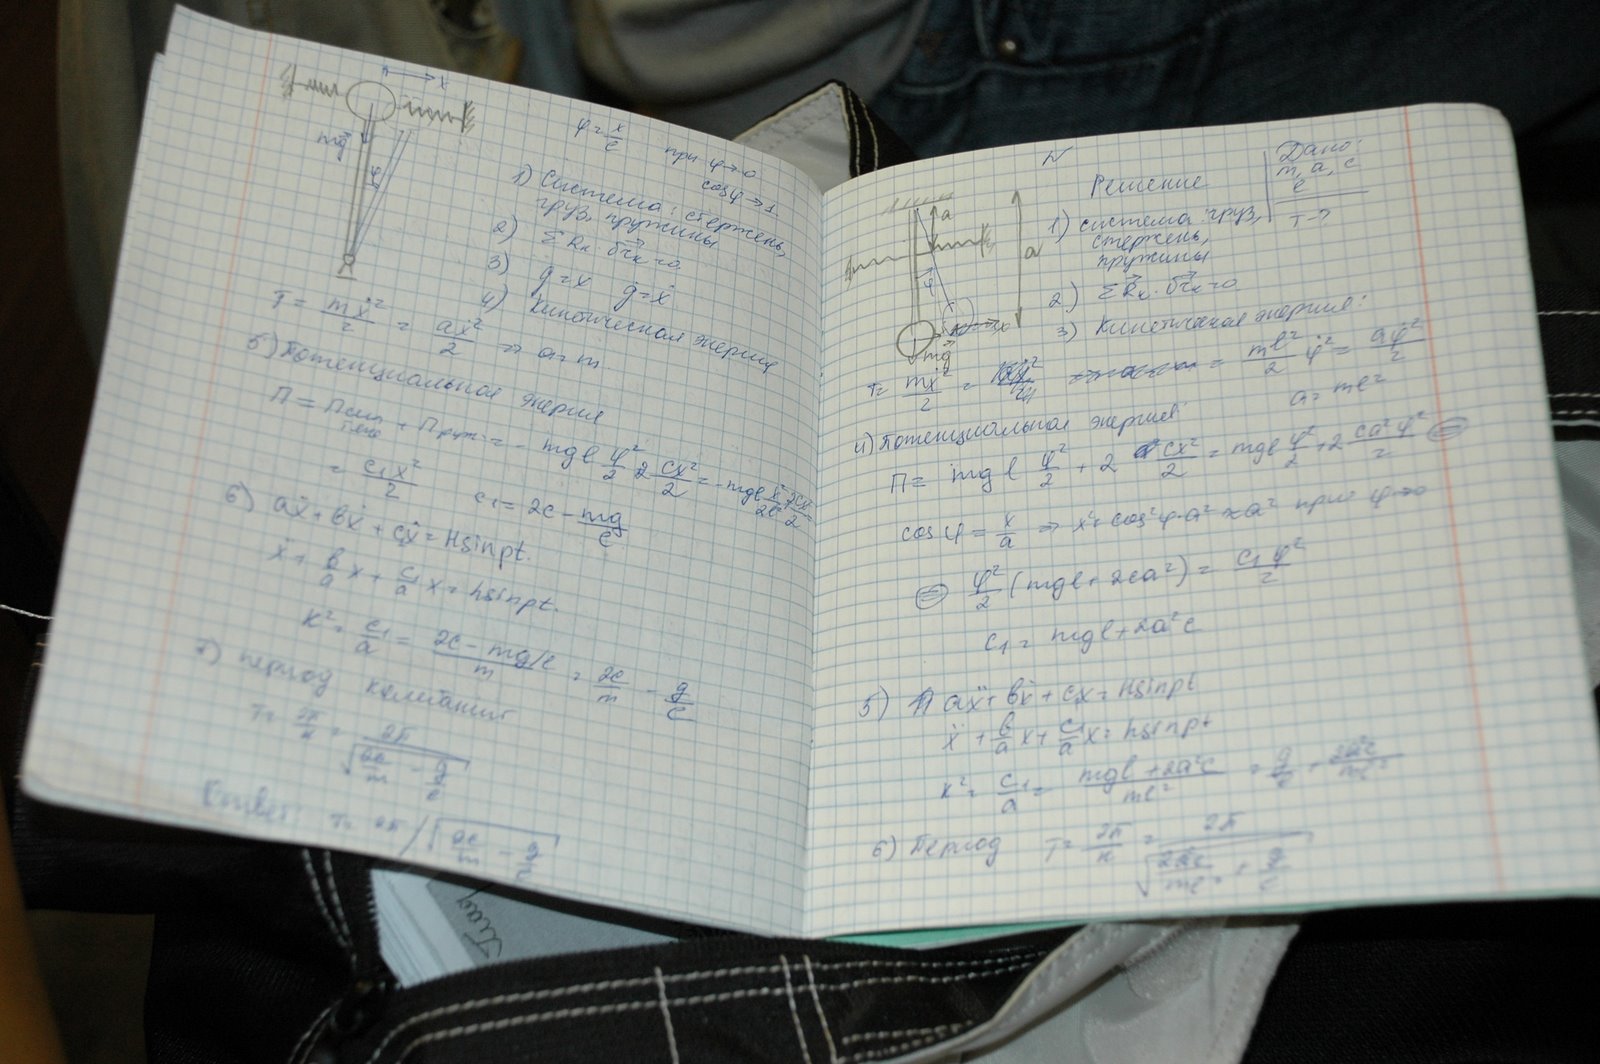 x
mg
φ
φ = x/ℓ
при φ→0
cosφ→1
1) Система: стержень,
груз, пружины
2) ΣR̄ₖ·δr̄ₖ=0
3) q=x q̇=ẋ
4) Кинетическая энергия
T = mẋ²/2 = aẋ²/2 ⇒ a=m
5) Потенциальная энергия
П = Псил тяж + Пруж = - mgℓ φ²/2 + 2 cx²/2 = -mgℓ x²/2ℓ² + 2cx²/2
= c₁x²/2 c₁ = 2c - mg/ℓ
6) aẍ + bẋ + cx = Hsinpt.
ẍ + b/a ẋ + c₁/a x = hsinpt.
k² = c₁/a = (2c - mg/ℓ)/m = 2c/m - g/ℓ
7.) период колебаний
T = 2π/k = 2π/√(2c/m - g/ℓ)
Ответ: T = 2π/√(2c/m - g/ℓ)
N
Дано:
m, a, c
ℓ
T-?
Решение
a
a
φ
mg
1) система: груз,
стержень,
пружины
2) ΣR̄ₖ·δr̄ₖ=0
3) Кинетическая энергия:
T = mẋ²/2 = = mℓ²/2 φ̇² = aφ̇²/2
a = mℓ²
4) Потенциальная энергия:
П = mgℓ φ²/2 + 2 cx²/2 = mgℓ φ²/2 + 2 ca²φ²/2 ⊜
cosφ = x/a ⇒ x² = cos²φ·a² ≈ a² при φ→0
⊜ φ²/2 (mgℓ + 2ca²) = c₁φ²/2
c₁ = mgℓ + 2a²c
5) aẍ + bẋ + cx = Hsinpt
ẍ + b/a ẋ + c₁/a x = hsinpt
k² = c₁/a = (mgℓ + 2a²c)/mℓ² = g/ℓ + 2a²c/mℓ²
6) Период T = 2π/k = 2π/√(2a²c/mℓ² + g/ℓ)